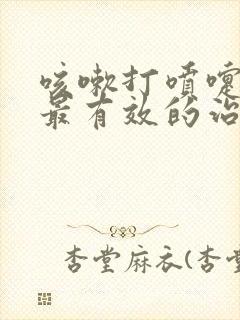 咳嗽打喷嚏
最有效的治
杏堂麻衣(杏堂